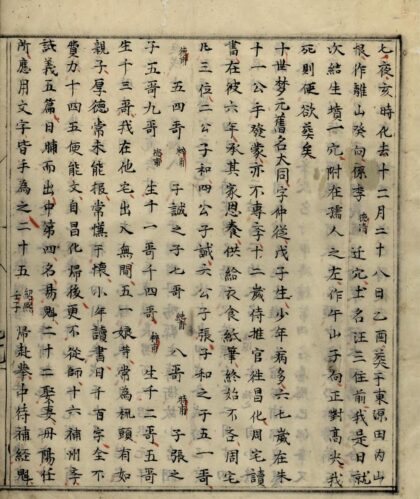 七夜亥時化去十二月二十八日乙酉葬于東源田內山
恨作離山癸向係李德清迁穴士名汪三住前我是日就
次結生墳一穴附在孺人之左作午山子向正對高尖我
死則便欲葬矣
十世梦元舊名大同字仲從戊子生少年病多六七歲在朱
十一公手發蒙亦不專學十二歲待推官姓昌化周宅讀
書在彼六年承其家恩養供給衣食紙筆終始不吝周宅
凡三位二公子和四公子誠六公子張子和之子五一哥
德甫五四哥純甫子誠之子七哥純甫八哥特甫子張之
子五哥九哥浩甫生千一哥千四哥和甫生千二哥五哥
生千三哥我在他宅出入無間五一娘昔常為梳頭有如
親子厚德常未能報常懷于懷小年讀書日千百字全不
費力十四五便能文自昌化歸後更不從師十六補州學
試義五篇日晡而出中第四名易魁二十二娶妻丹陽任
所應月文字皆手為之二十五紹熙壬子歸赴舉中待補經魁